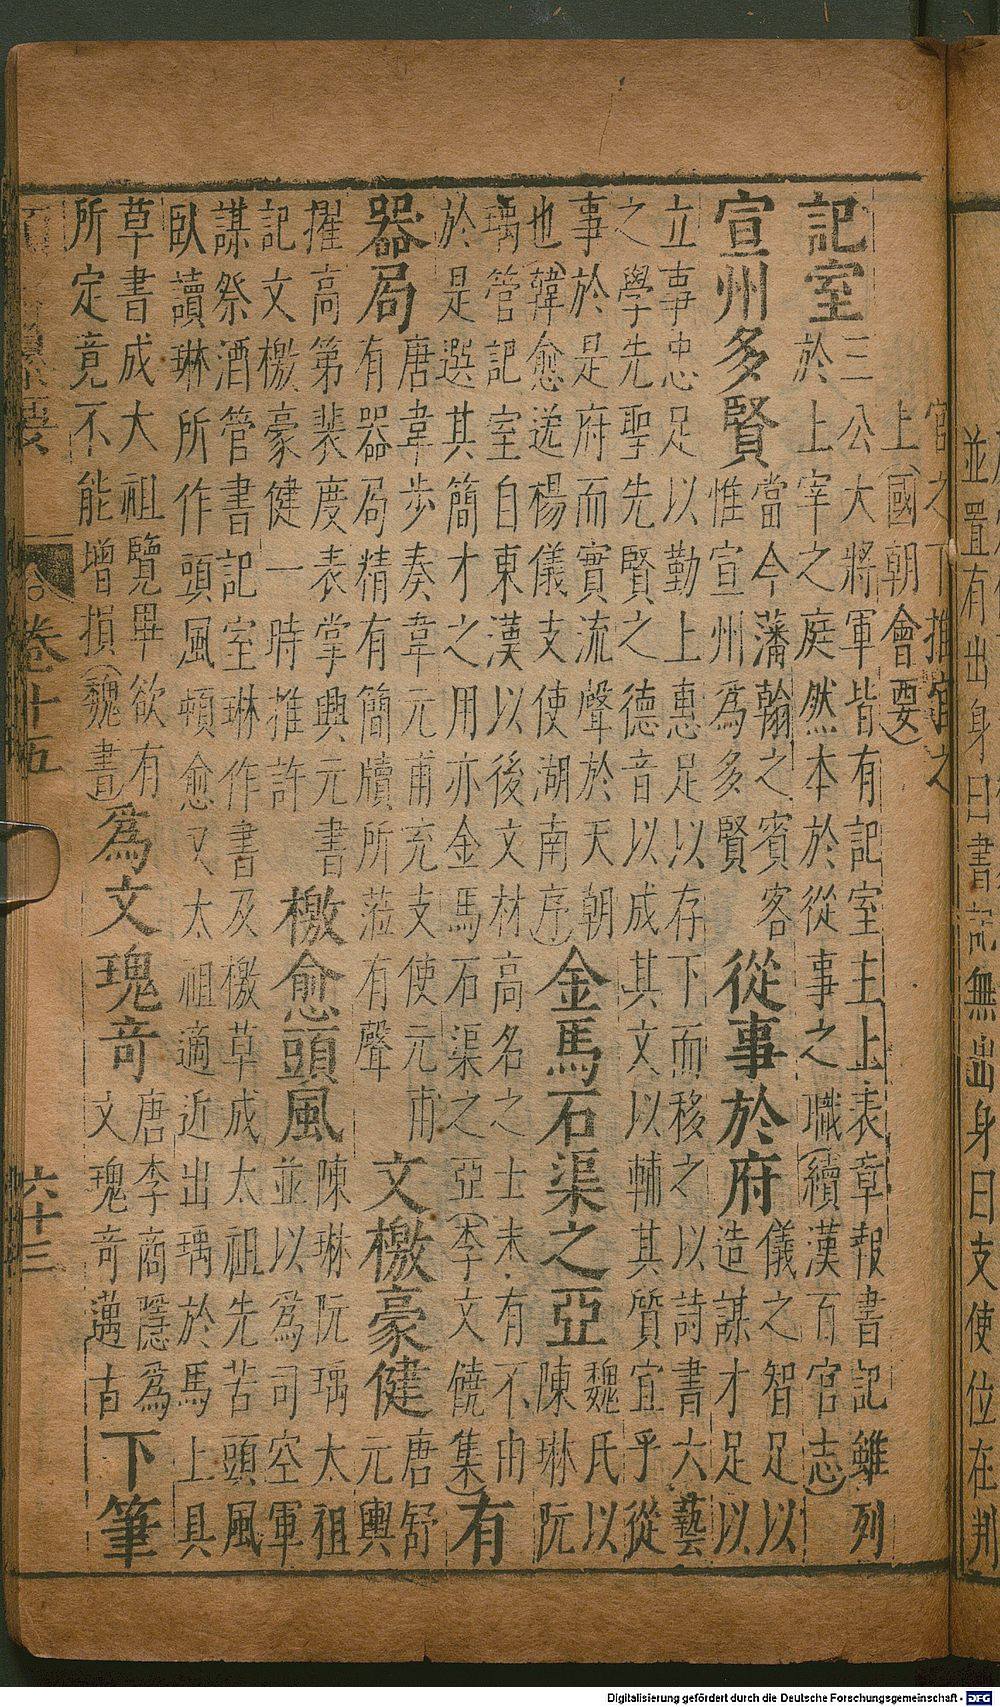 並置有出身曰書記無出身曰支使位在判
官之下推官之
上(國朝會要)
記室
三公大將軍皆有記室主上表章報書記雖列
於上宰之庭然本於從事之職(續漢百官志)
宣州多賢
當今藩翰之賓客
惟宣州爲多賢
從事於府
儀之智足以
造謀才足以
立事忠足以勤上惠足以存下而移之以詩書六藝
之學先聖先賢之德音以成其文以輔其質宜乎從
事於是府而實流聲於天朝
也(韓愈送楊儀支使湖南序)
金馬石渠之亞
魏氏以
陳琳阮
瑀管記室自東漢以後文材高名之士未有不由
於是選其簡才之用亦金馬石渠之亞(李文饒集)
有
器局
唐韋步奏韋元甫充支使元甫
有器局精有簡牘所蒞有聲
文檄豪健
唐舒
元輿
擢高第裴度表掌興元書
記文檄豪健一時推許
檄愈頭風
陳琳阮瑀太祖
並以爲司空軍
謀祭酒管書記室琳作書及檄草成太祖先苦頭風
臥讀琳所作頭風頓愈又太祖適近出瑀於馬上具
草書成大祖覽畢欲有
所定竟不能增損(魏書)
爲文瑰奇
唐李商隱爲
文瑰奇邁古
下筆
卷十五
六十三
Digitalisierung gefördert durch die Deutsche Forschungsgemeinschaft - DFG